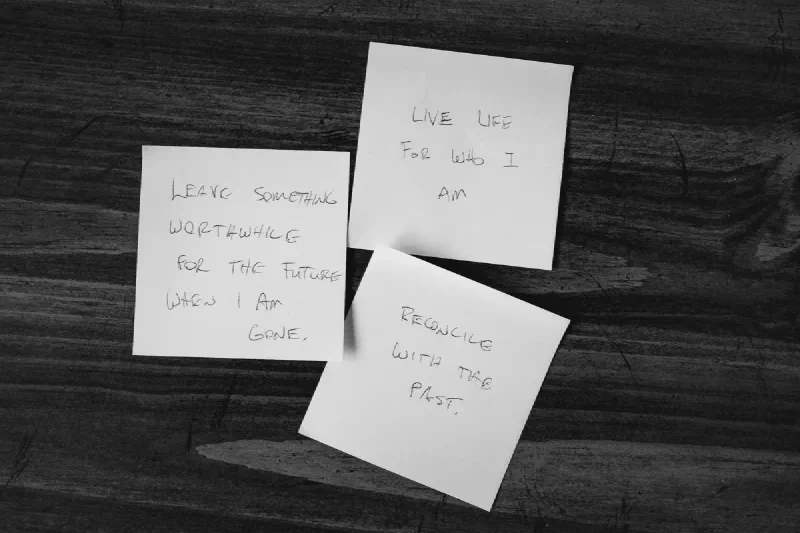 LIVE LIFE
FOR WHO I
AM
LEAVE SOMETHING
WORTHWHILE
FOR THE FUTURE
WHEN I AM
GONE.
RECONCILE
WITH THE
PAST.